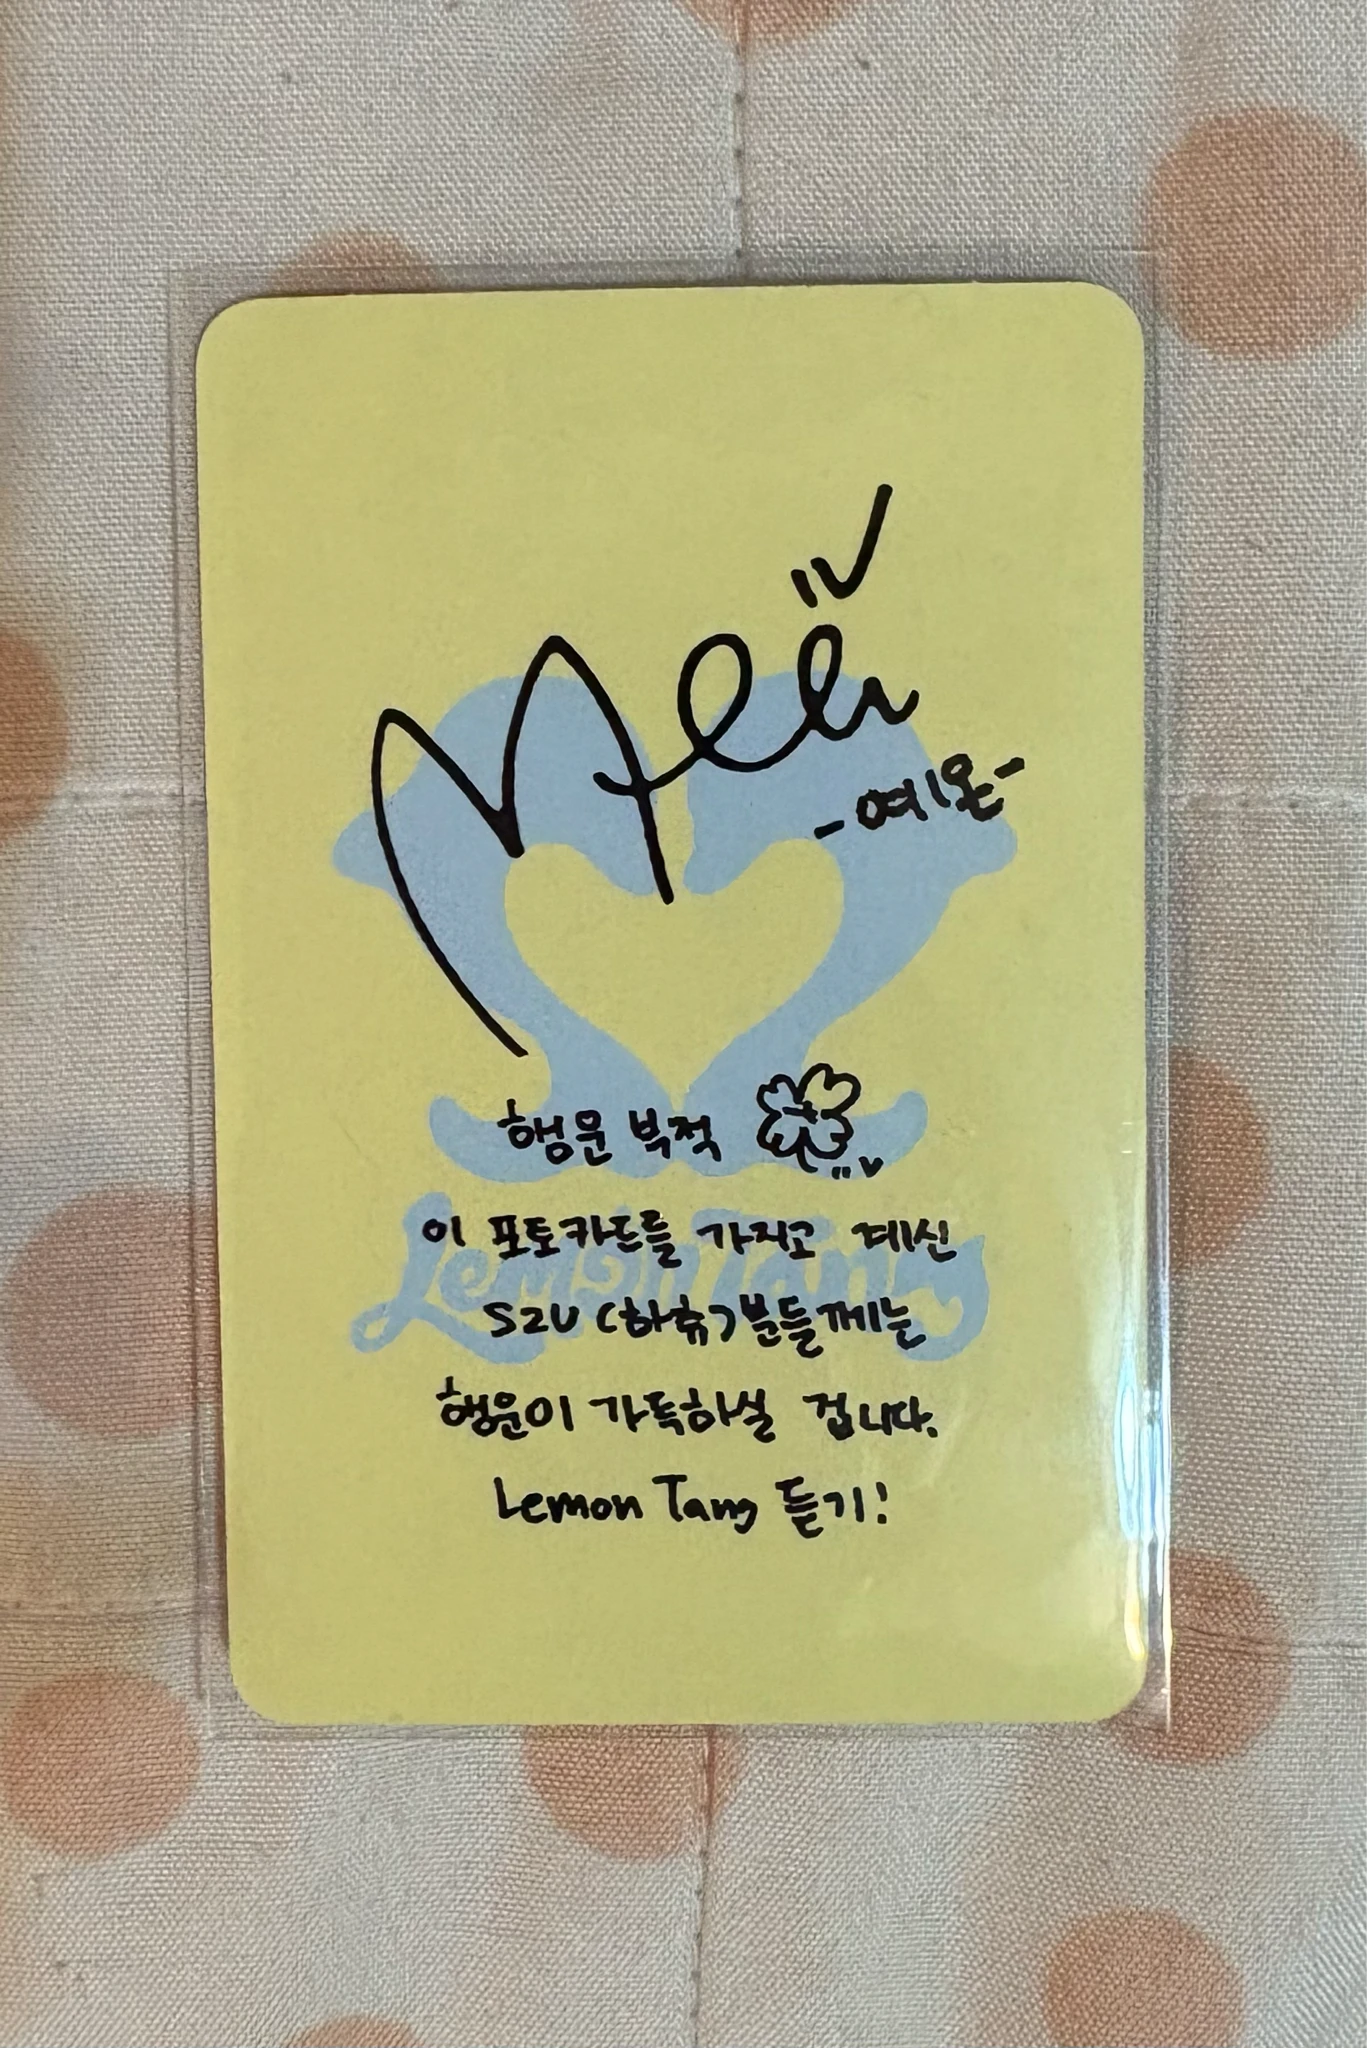 -여온-
행운 부적
이 포토카드를 가지고 계신
Lemon Tang
S2U (하츄) 분들께는
행운이 가득하실 겁니다.
Lemon Tang 듣기!